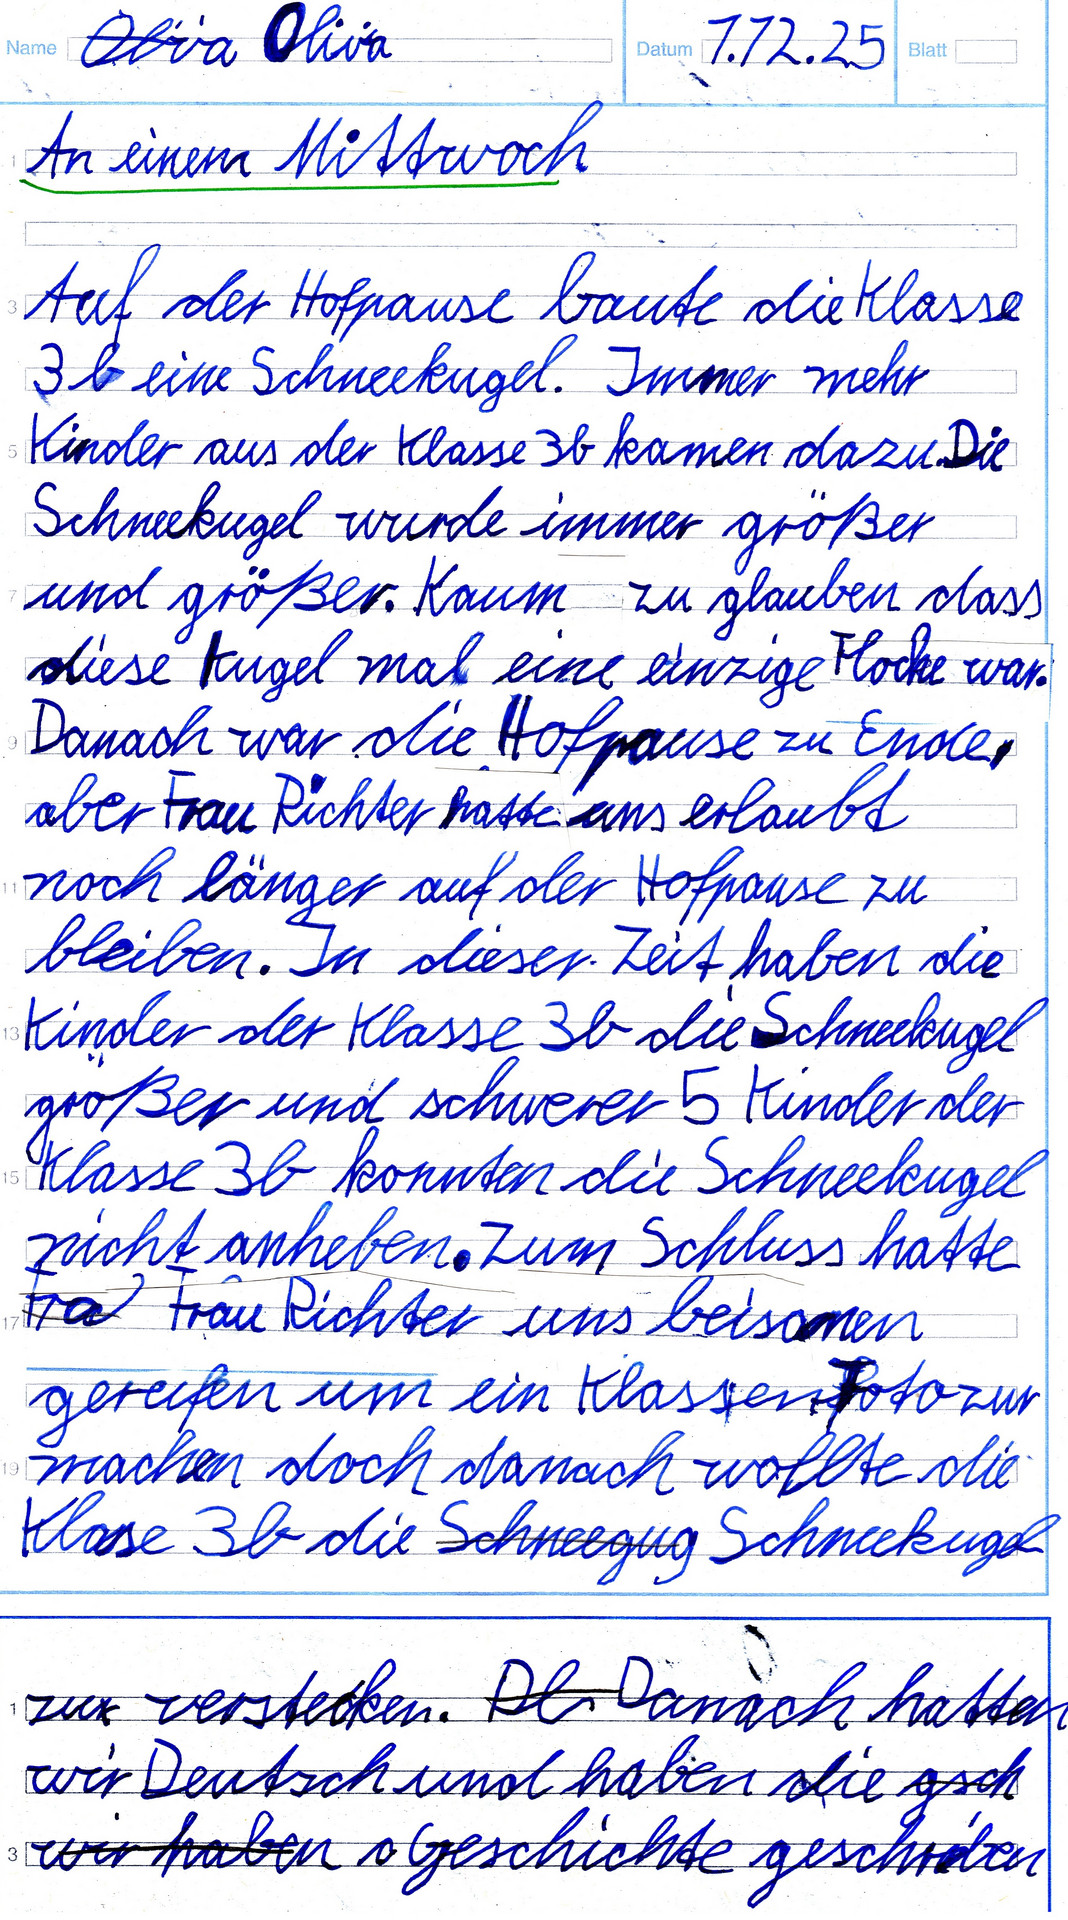 Name Oliva Oliva Datum 1.12.25 Blatt
1 An einem Mittwoch
3 Auf der Hofpause baute die Klasse
3b eine Schneekugel. Immer mehr
5 Kinder aus der Klasse 3b kamen dazu. Die
Schneekugel wurde immer größer
7 und größer. Kaum zu glauben dass
diese kugel mal eine einzige Flocke war.
9 Danach war die Hofpause zu Ende,
aber Frau Richter hatte uns erlaubt
11 noch länger auf der Hofpause zu
bleiben. In dieser Zeit haben die
13 Kinder der Klasse 3b die Schneekugel
größer und schwerer 5 Kinder der
15 Klasse 3b konnten die Schneekugel
nicht anheben. Zum Schluss hatte
17 Fra Frau Richter uns beisamen
gereifen um ein Klassenfoto zur
19 machen doch danach wollte die
Klasse 3b die Schneegug Schneekugel
1 zur verstecken. Danach hatten
wir Deutsch und haben die gsch
3 wir haben Geschichte geschriben